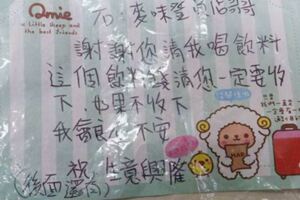 Amie
a little sheep and
the best friends
石:麥味登的店哥
謝謝您請我喝飲料
這個飲料錢請您一定要收
下,如果不收下
我會良心不安
祝 生意興隆
(後面還有)
MAP